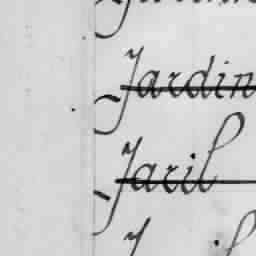 Jardin
Jaril